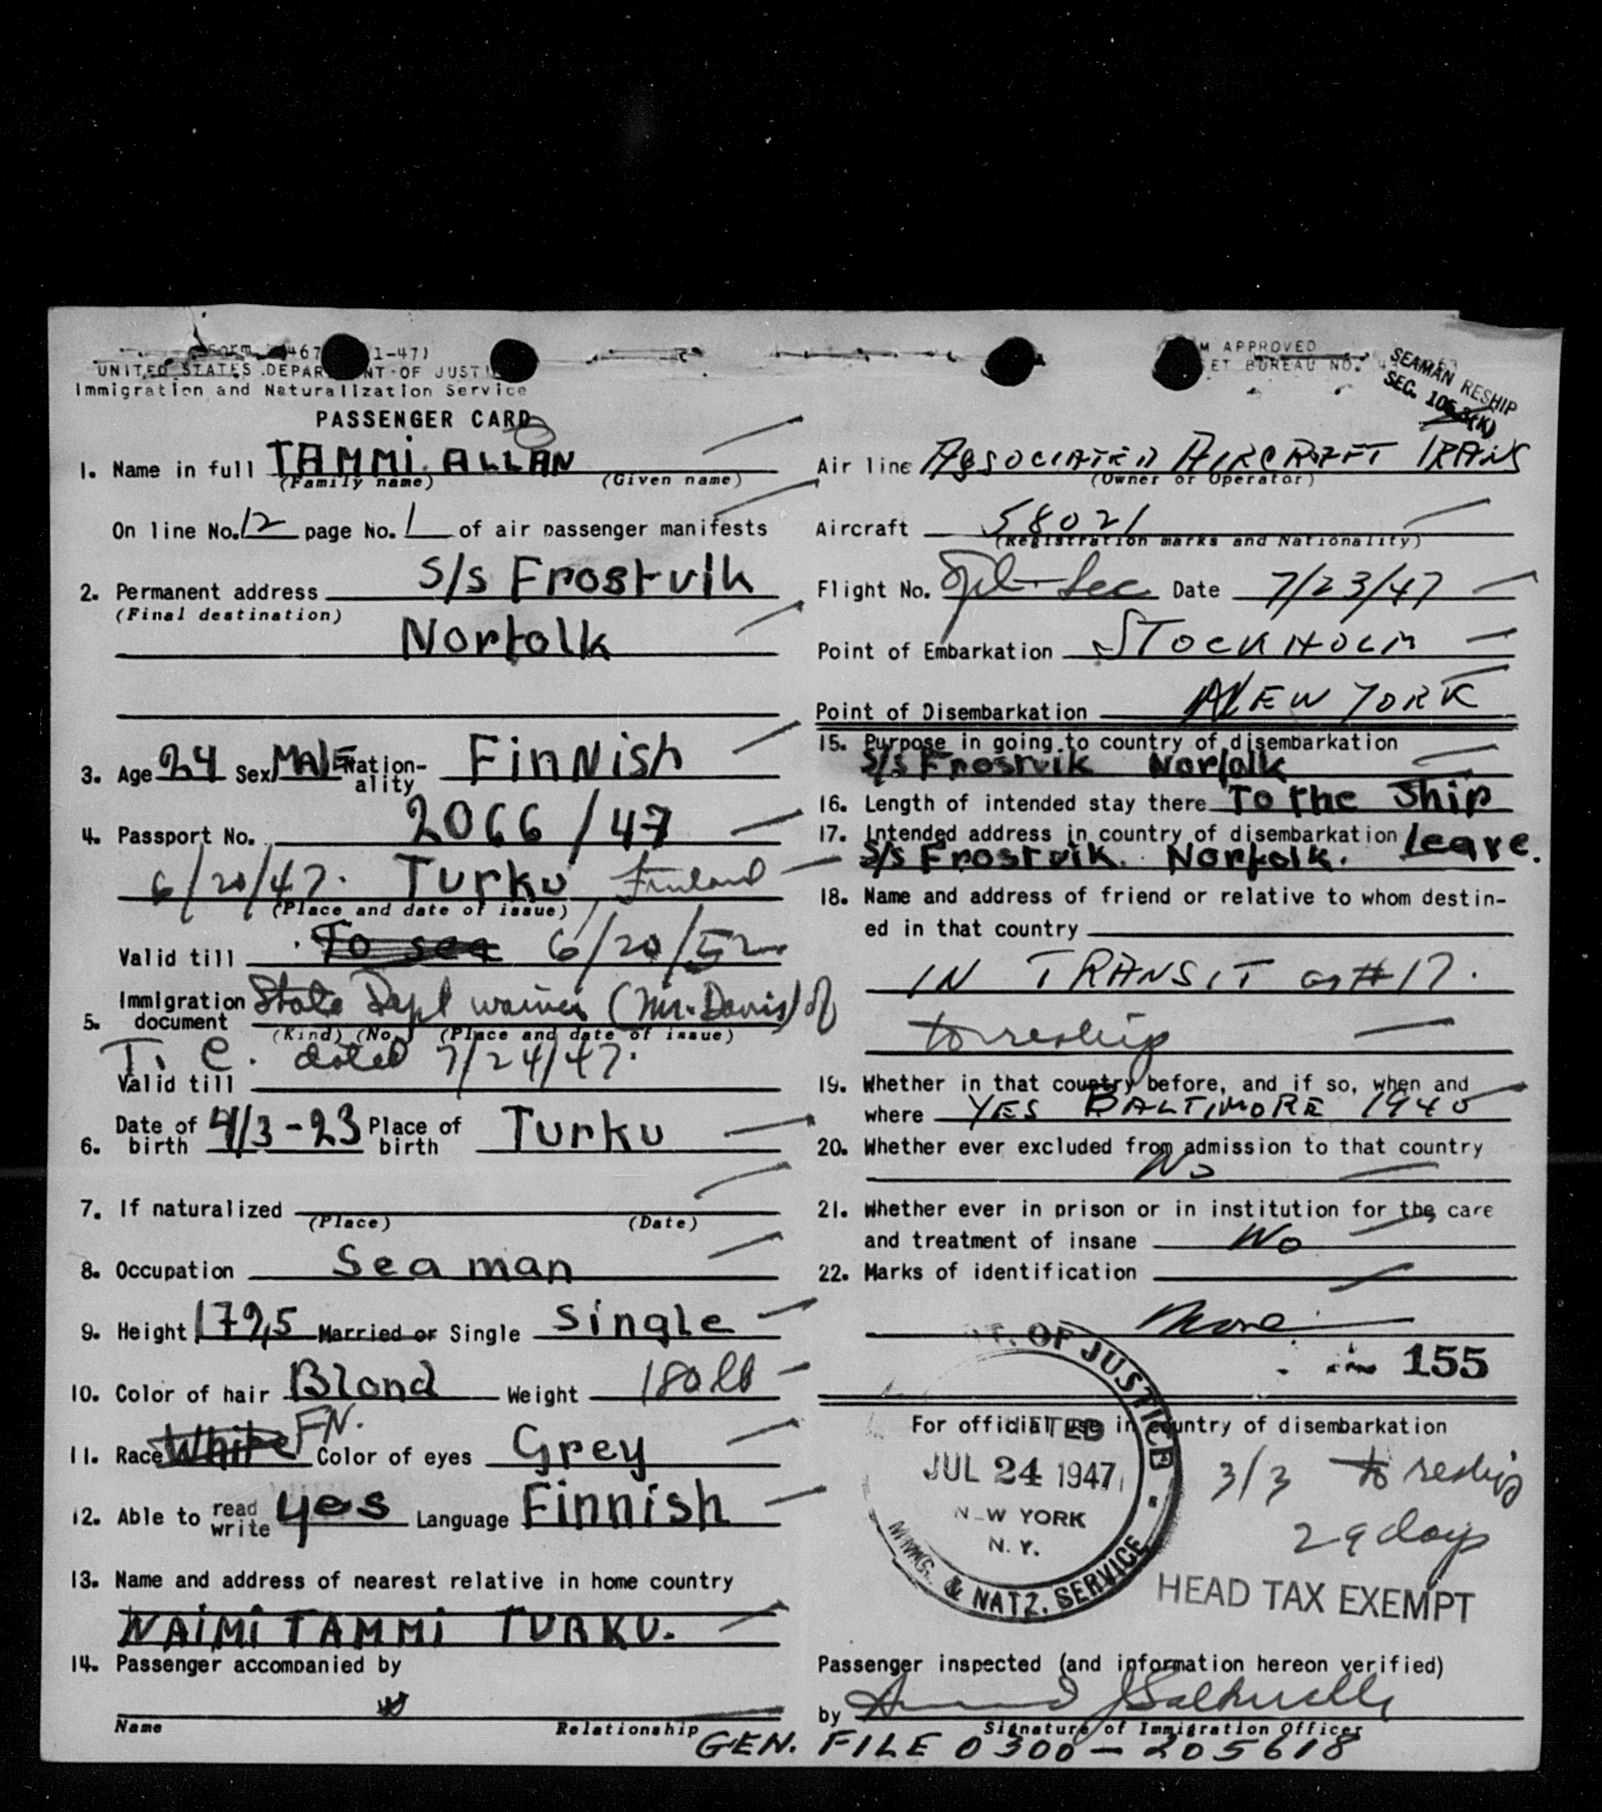 Form 467 1-47)
UNITED STATES DEPAR NT OF JUSTI
Immigration and Naturalization Service
PASSENGER CARD
M APPROVED
ET BUREAU NO.
SEAMAN RESHIP
SEC.
1. Name in full TAMMI. ALLAN
(Family name) (Given name)
On line No. 12 page No. 1 of air passenger manifests
2. Permanent address S/S Frostvik
(Final destination)
Norfolk
3. Age 24 Sex MALE Nation-ality Finnish
4. Passport No. 2066/47
6/20/47. Turku Finland
(Place and date of issue)
Valid till To sea 6/20/52
5. Immigration document State Dept waiver (Mr. Davis) of
(Kind) (No.) (Place and date of issue)
T. C. dated 7/24/47.
Valid till
6. Date of birth 4/3-23 Place of birth Turku
7. If naturalized
(Place) (Date)
8. Occupation Seaman
9. Height 179,5 Married or Single Single
10. Color of hair Blond Weight 180 lb
11. Race White FN. Color of eyes Grey
12. Able to read write yes Language Finnish
13. Name and address of nearest relative in home country
NAIMI TAMMI TURKU.
14. Passenger accompanied by
Name Relationship
Air line ASSOCIATED AIRCRAFT TRANS
(Owner or Operator)
Aircraft 58021
(Registration marks and Nationality)
Flight No. Spl-Sec Date 7/23/47
Point of Embarkation STOCKHOLM
Point of Disembarkation NEW YORK
15. Purpose in going to country of disembarkation
S/S Frostvik Norfolk
16. Length of intended stay there To the Ship
leave.
17. Intended address in country of disembarkation
S/S Frostvik. Norfolk.
18. Name and address of friend or relative to whom destin-
ed in that country
IN TRANSIT as #17.
to reship
19. Whether in that country before, and if so, when and
where YES BALTIMORE 1940
20. Whether ever excluded from admission to that country
No
21. Whether ever in prison or in institution for the care
and treatment of insane No
22. Marks of identification
None
155
For official use in country of disembarkation
T. OF JUSTICE
TED
JUL 24 1947
N_W YORK
N. Y.
IMMIG. & NATZ. SERVICE
3/3 to reship
29 days
HEAD TAX EXEMPT
Passenger inspected (and information hereon verified)
by
Signature of Immigration Officer
GEN. FILE 0300-205618